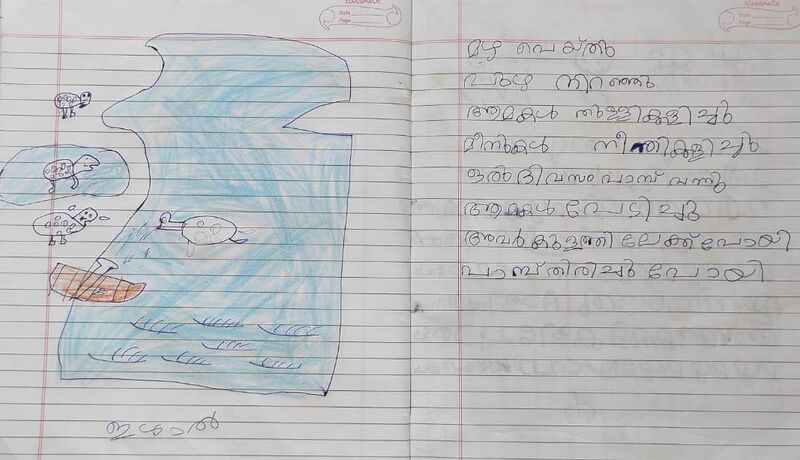 classmate
Date
Page
ഇശാൽ
classmate
Date
Page
മഴ പെയ്തു
പുഴ നിറഞ്ഞു
ആമകൾ തുള്ളികളിച്ചു
മീനുകൾ നീന്തികളിച്ചു
ഒരു ദിവസം പാമ്പ് വന്നു
ആമകൾ പേടിച്ചു
അവർ കുളത്തിലേക്ക് പോയി
പാമ്പ് തിരിച്ചു പോയി